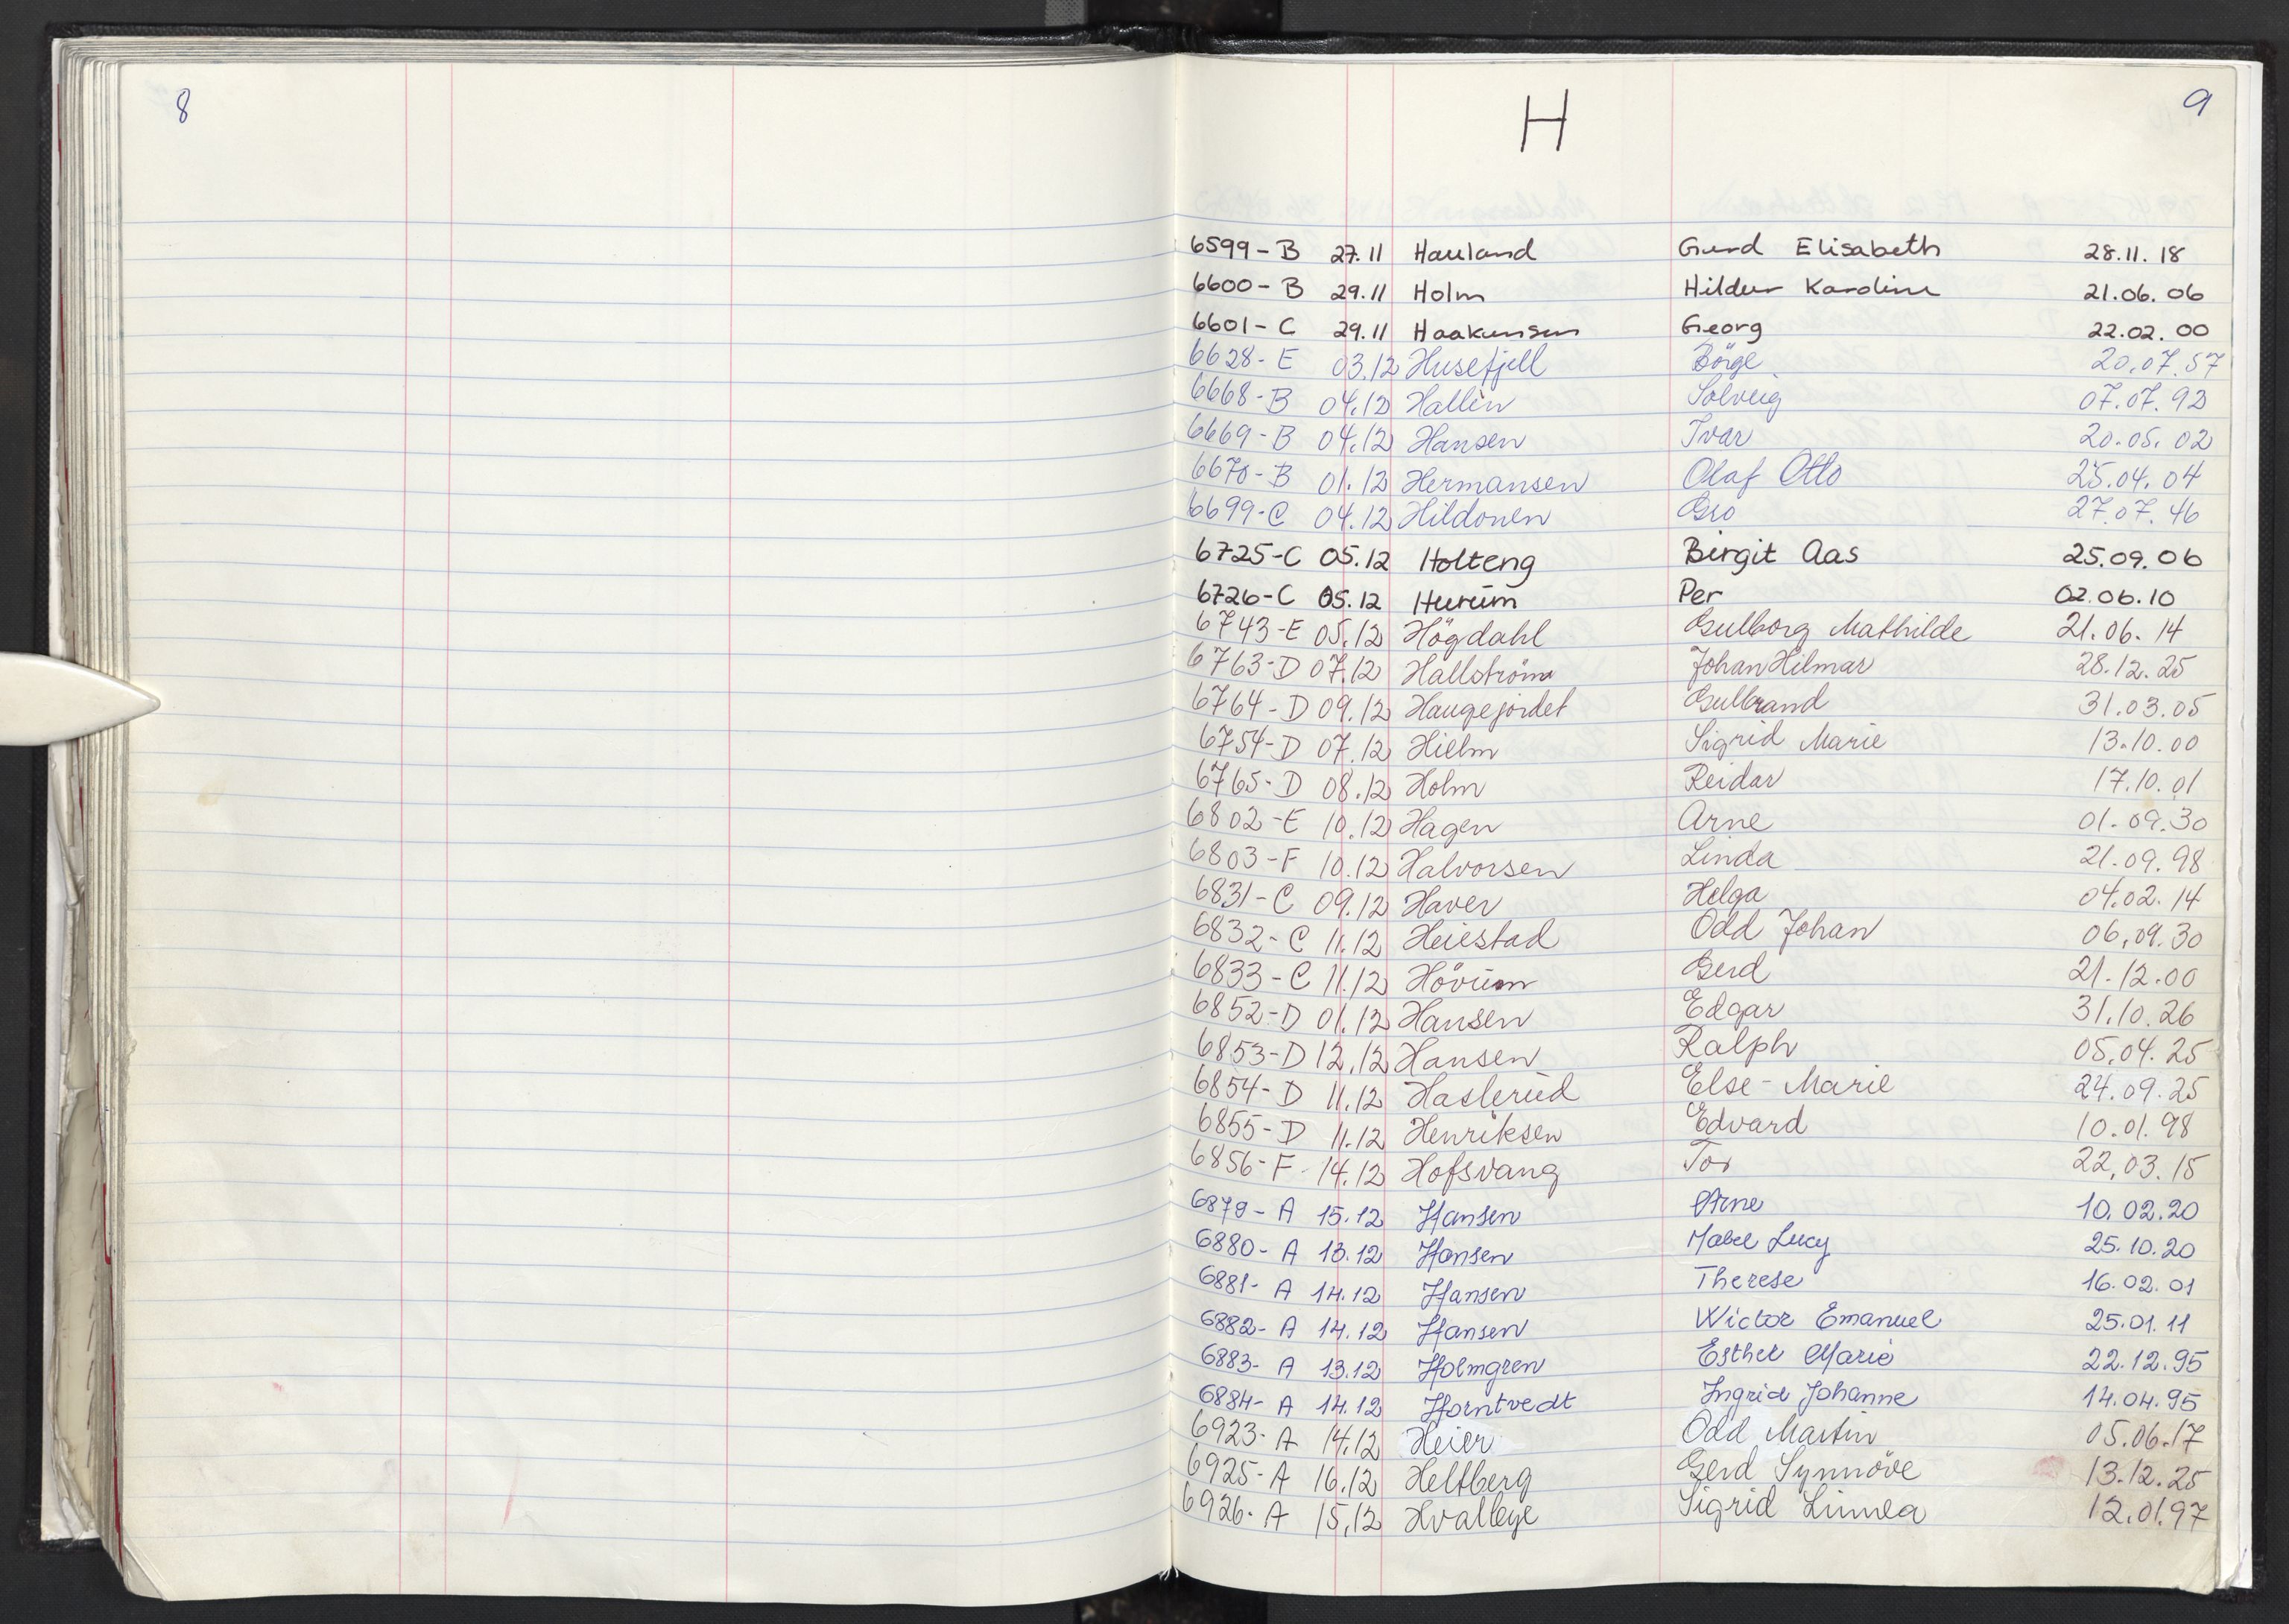 8
9
H
6599-B 27.11 Hauland Gerd Elisabeth 28.11.18
6600-B 29.11 Holm Hildur Karoline 21.06.06
6601-C 29.11 Haakunsen Georg 22.02.00
6628-E 03.12 Husefjell Börge 20.07.57
6668-B 04.12 Hallin Solveig 07.07.92
6669-B 04.12 Hansen Ivar 20.05.02
6670-B 01.12 Hermansen Olaf Otto 25.04.04
6699-C 04.12 Hildonen Gro 27.07.46
6725-C 05.12 Holteng Birgit Aas 25.09.06
6726-C 05.12 Hurum Per 02.06.10
6743-E 05.12 Högdahl Gulborg Mathilde 21.06.14
6763-D 07.12 Hallström Johan Hilmar 28.12.25
6764-D 09.12 Haugejordet Gulbrand 31.03.05
6754-D 07.12 Hielm Sigrid Marie 13.10.00
6765-D 08.12 Holm Reidar 17.10.01
6802-E 10.12 Hagen Arne 01.09.30
6803-F 10.12 Halvorsen Linda 21.09.98
6831-C 09.12 Haver Helga 04.02.14
6832-C 11.12 Heiestad Odd Johan 06.09.30
6833-C 11.12 Hövum Gerd 21.12.00
6852-D 01.12 Hansen Edgar 31.10.26
6853-D 12.12 Hansen Ralph 05.04.25
6854-D 11.12 Haslerud Else-Marie 24.09.25
6855-D 11.12 Henriksen Edvard 10.01.98
6856-F 14.12 Hofsvang Tor 22.03.15
6879-A 15.12 Hansen Arne 10.02.20
6880-A 13.12 Hansen Mabel Lucy 25.10.20
6881-A 14.12 Hansen Therese 16.02.01
6882-A 14.12 Hansen Wictor Emanuel 25.01.11
6883-A 13.12 Holmgren Esther Marie 22.12.95
6884-A 14.12 Horntvedt Ingrid Johanne 14.04.95
6923-A 14.12 Heier Odd Martin 05.06.17
6925-A 16.12 Heltberg Gerd Synnöve 13.12.25
6926-A 15.12 Hvalbye Sigrid Linnea 12.01.97